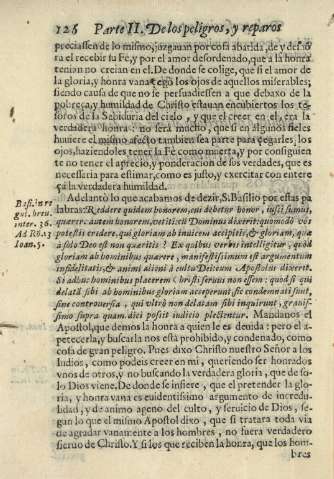 126 Parte II. De los peligros, y reparos
preciassen de lo mismo, juzgauan por cosa abatida, de y deso
ra el recebir su Fè, y por el amor desordenado, que a la honra
tenian no creian en el. De donde se colige, que si el amor de
la gloria, y honra vana cegò los ojos de aquellos miserables,
siendo causa de que no se persuadiessen a que debaxo de la
pobreza, y humildad de Christo estauan encubiertos los te-
soros de la Sabiduria del cielo, y que el creer en el, era la
verdadera honra: no serà mucho, que si en algunos fieles
huuiere el mismo afecto tambien sea parte para cegarles, los
ojos, haziendoles tener la Fè como muerta, y por consiguien
te no tener el aprecio, y ponderacion de sus verdades, que es
necessaria para estimar, como es justo, y exercitar con entere
ça la verdadera humildad.
Adelantò lo que acabamos de dezir, S. Basilio por estas pa
labras: Reddere quidem honorem, cui debetur honor, iussi sumus,
quærere autem honorem, vetiti: à Domino dixerit: quomodò vos
potestis credere, qui gloriam ab inuicem accipitis, & gloriam, quæ
à solo Deo est non quæritis? Ex quibus verbis intelligitur, quòd
gloriam ab hominibus quærere, manifestissimum est argumentum
infidelitatis, & animi alieni à cultu Dei: cum Apostolus dixerit.
Si adhuc hominibus placerem Christi seruus non essem: quòd si qui
delatā sibi ab hominibus gloriam acceperunt, sic condemnati sunt,
sine controuersia, qui vltrò non delatam sibi inquirunt, grauis-
simo supra quam dici possit iudicio plectentur. Mandanos el
Apostol, que demos la honra a quien le es deuida: pero el a-
petecerla, y buscarla nos està prohibido, y condenado, como
cosa de gran peligro. Pues dixo Christo nuestro Señor a los
Iudios, como podeis creer en mi, queriendo ser honrados
vnos de otros, y no buscando la verdadera gloria, que de so-
lo Dios viene, De donde se infiere, que el pretender la glo-
ria, y honra vana es euidentissimo argumento de incredu-
lidad, y de animo ageno del culto, y seruicio de Dios, se-
gun lo que el mismo Apostol dixo, que si tratara toda via
de agradar vanamente a los hombres, no fuera verdadero
sieruo de Christo. Y si los que reciben la honra, que los hom-
bres
Bas. in re
gul. breu.
inter. 36.
Ad Rō. 13
Ioan. 5.